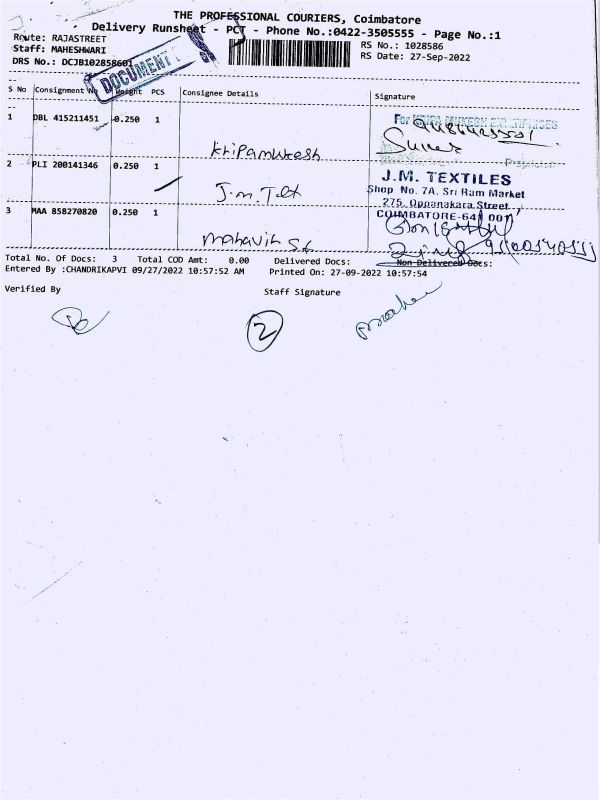 THE PROFESSIONAL COURIERS, Coimbatore
Delivery Runsheet - PCT - Phone No.:0422-3505555 - Page No.:1
Route: RAJASTREET
RS No.: 1028586
Staff: MAHESHWARI
RS Date: 27-Sep-2022
DRS No.: DCJB102858601
DOCUMENT
S No Consignment No Weight PCS Consignee Details Signature
1 DBL 415211451 0.250 1
KripaMukesh
2 PLI 200141346 0.250 1
J.m. Tex
J.M. TEXTILES
Shop No. 7A, Sri Ram Market
275, Oppanakara Street,
COIMBATORE-641 001
3 MAA 858270820 0.250 1
Mahavir
Total No. Of Docs: 3 Total COD Amt: 0.00 Delivered Docs: Non Delivered Docs:
Entered By :CHANDRIKAPVI 09/27/2022 10:57:52 AM Printed On: 27-09-2022 10:57:54
Verified By Staff Signature
2